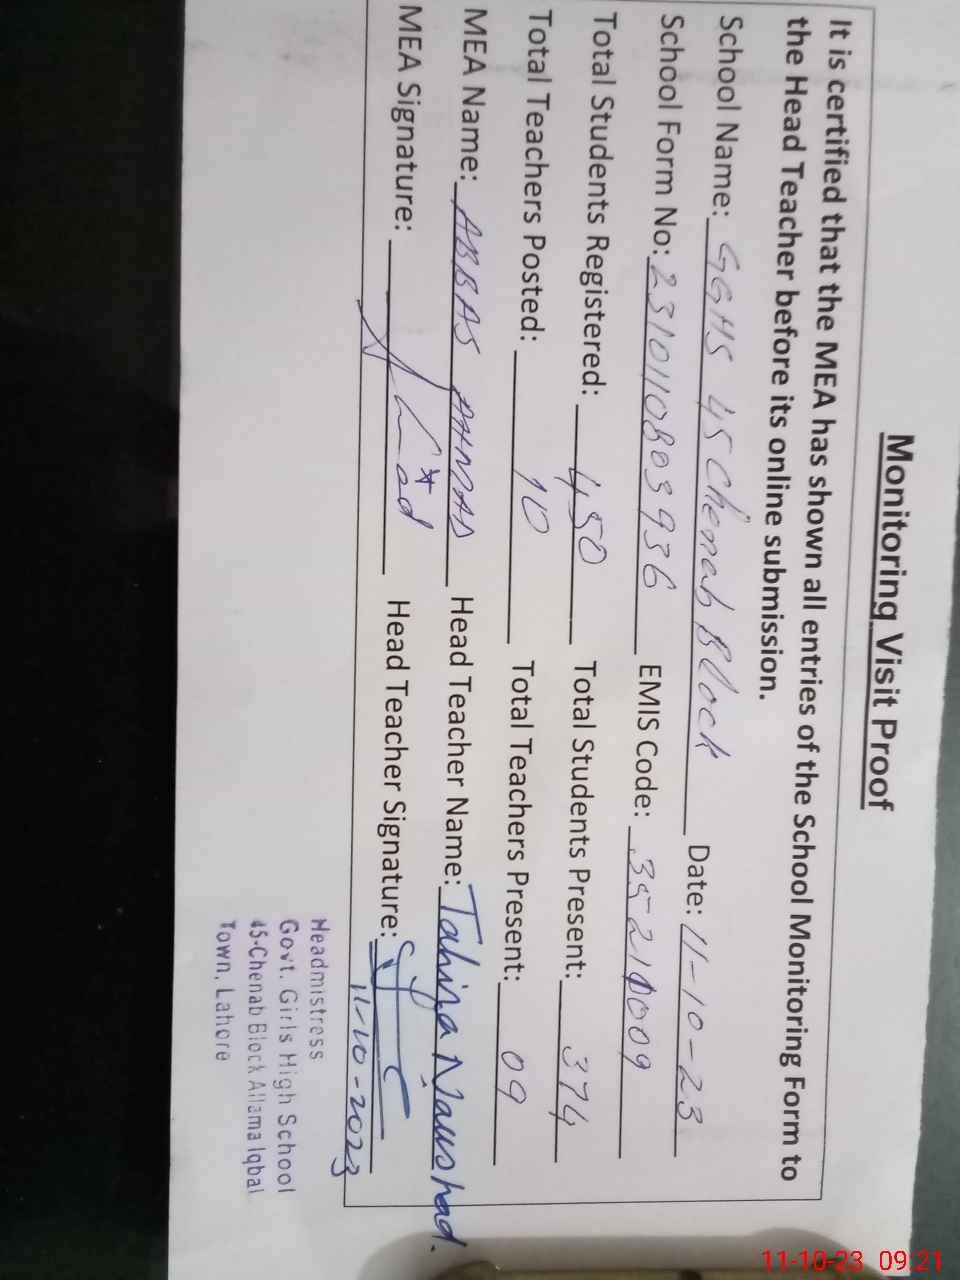 Monitoring Visit Proof
It is certified that the MEA has shown all entries of the School Monitoring Form to
the Head Teacher before its online submission.
School Name: GGHS 45 Chenab Block Date: 11-10-23
School Form No: 2310110803936 EMIS Code: 35210009
Total Students Registered: 450 Total Students Present: 374
Total Teachers Posted: 10 Total Teachers Present: 09
MEA Name: ABBAS AHMAD Head Teacher Name: Tahira Naushad.
MEA Signature: Head Teacher Signature:
11-10-2023
Headmistress
Govt. Girls High School
45-Chenab Block Allama Iqbal
Town, Lahore
11-10-23 09:21